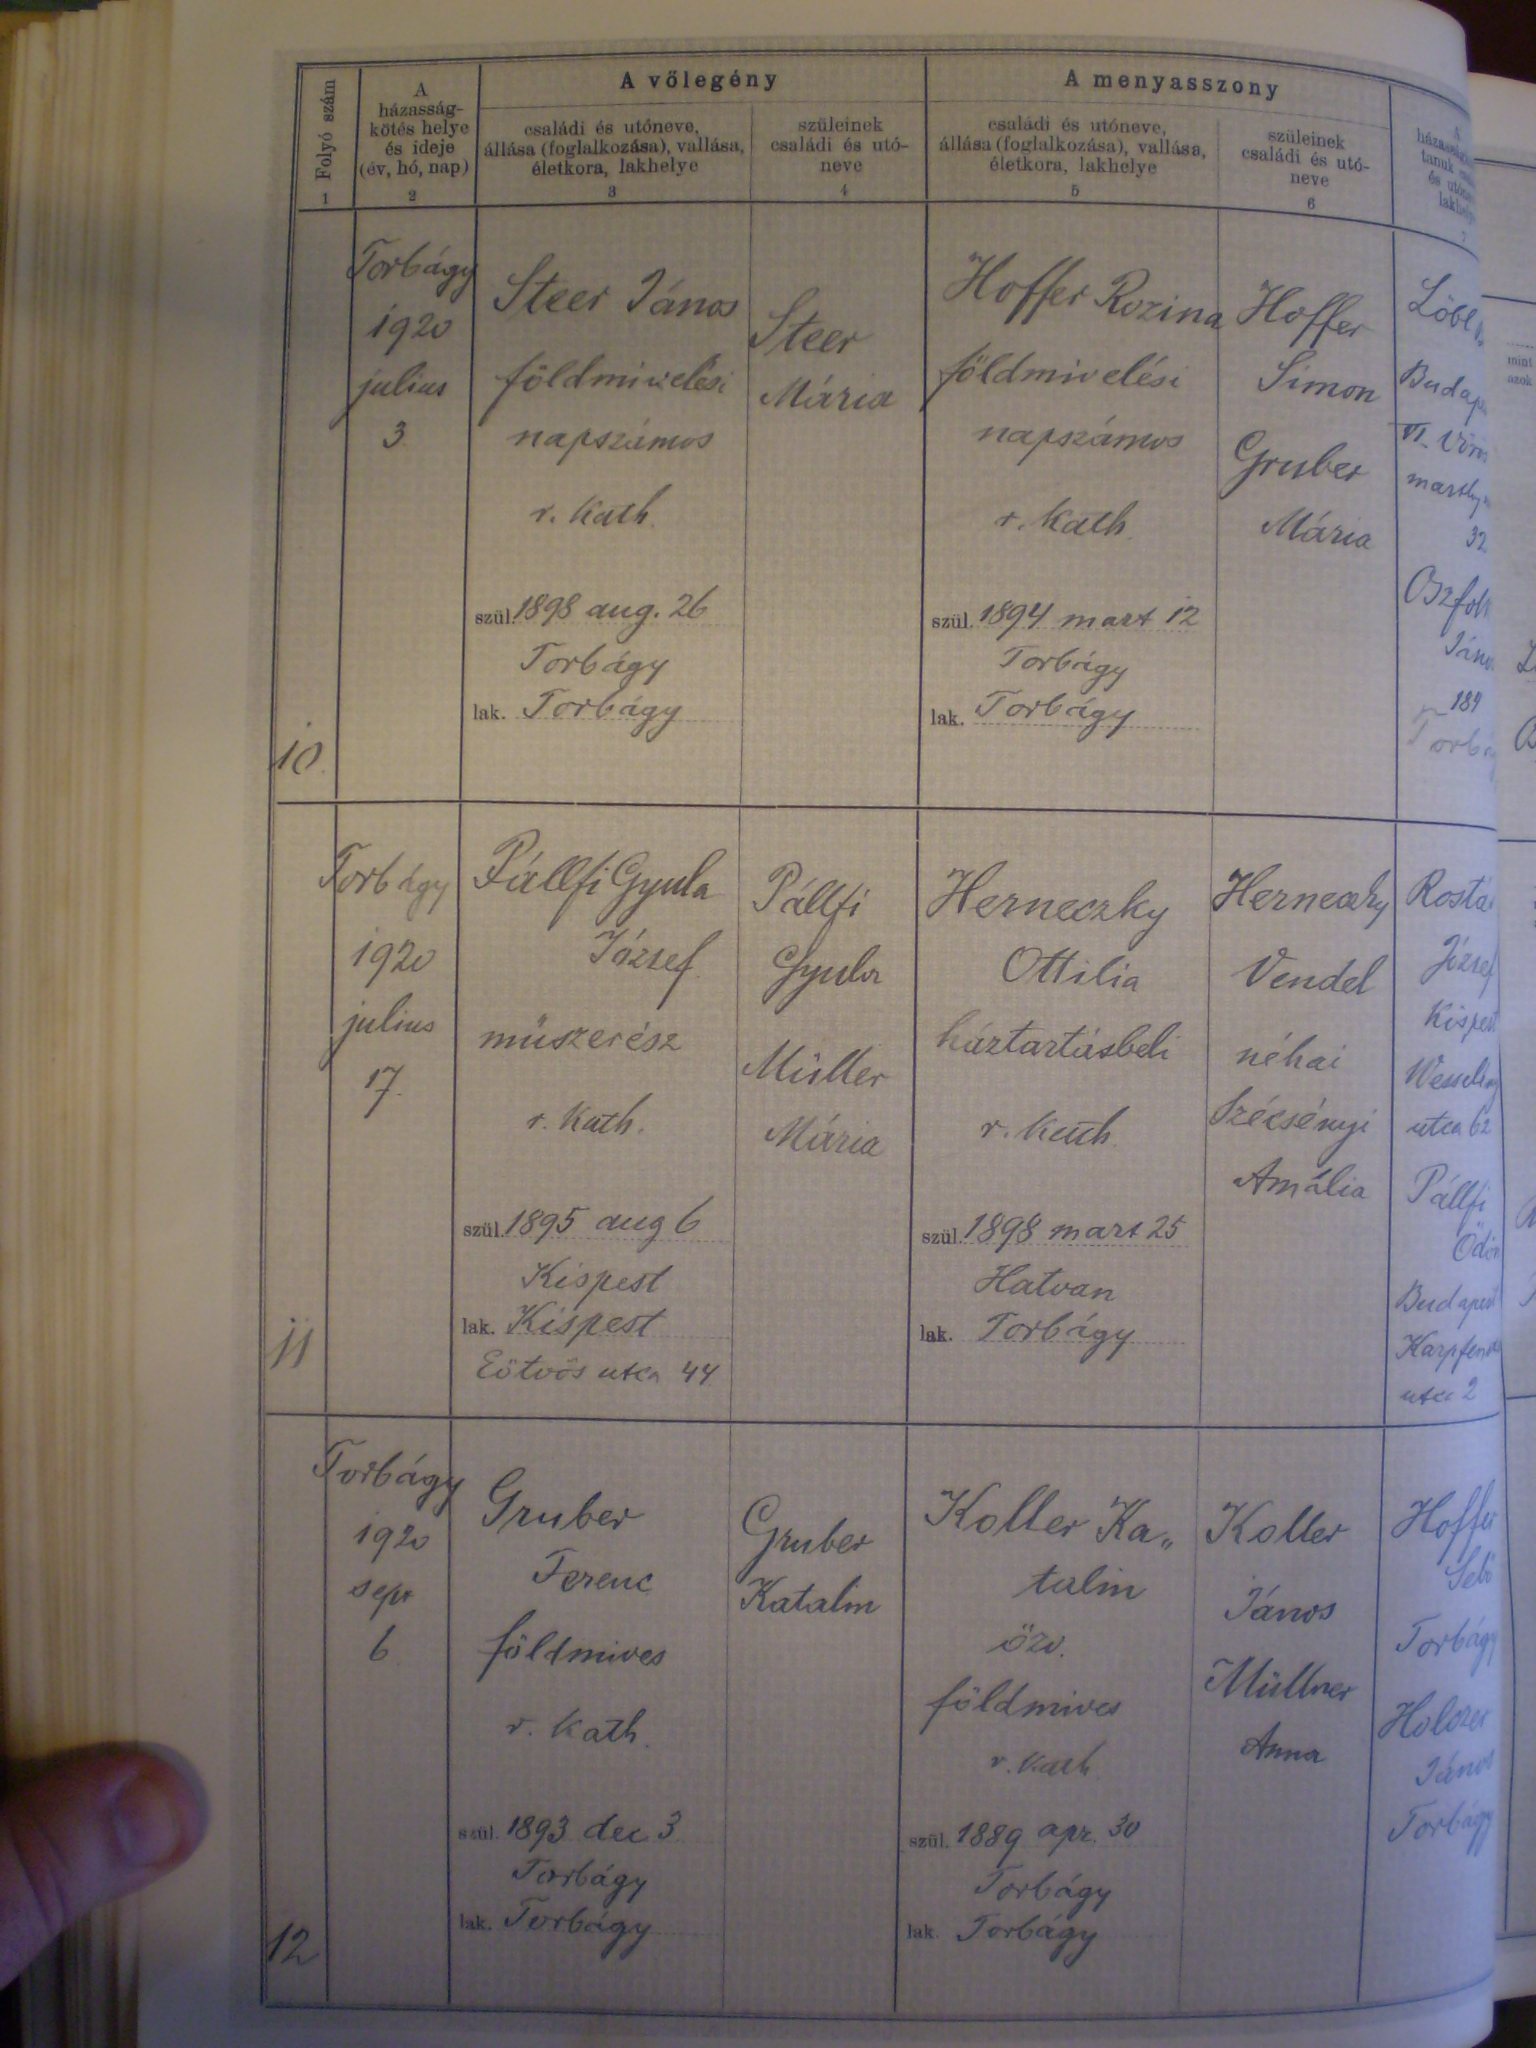 A vőlegény
A menyasszony
Folyó szám
A
házasság-
kötés helye
és ideje
(év, hó, nap)
családi és utóneve,
állása (foglalkozása), vallása,
életkora, lakhelye
szüleinek
családi és utó-
neve
családi és utóneve,
állása (foglalkozása), vallása,
életkora, lakhelye
szüleinek
családi és utó-
neve
1
2
3
4
5
6
7
10.
Torbágy
1920
julius
3
Steer János
földmivelési
napszámos
r. kath.
szül. 1898 aug. 26
Torbágy
lak. Torbágy
Steer
Mária
Hoffer Rozina
földmivelési
napszámos
r. kath.
szül. 1894 mart 12
Torbágy
lak. Torbágy
Hoffer
Simon
Gruber
Mária
Löbl
Budap
VI. Vörös
marthy
32
Oszfolk
János
189
Torbág
11
Torbágy
1920
julius
17.
Pállfi Gyula
József
műszerész
r. kath.
szül. 1895 aug 6
Kispest
lak. Kispest
Eötvös utca 44
Pállfi
Gyula
Müller
Mária
Herneczky
Ottilia
háztartásbeli
r. kath.
szül. 1898 mart 25
Hatvan
lak. Torbágy
Herneczky
Vendel
néhai
Szécsényi
Amália
Rostás
József
Kispest
Wesselény
utca 62
Pállfi
Ödön
Budapest
Karpfen
utca 2
12
Torbágy
1920
sept
6
Gruber
Ferenc
földmives
r. kath.
szül. 1893 dec 3.
Torbágy
lak. Torbágy
Gruber
Katalin
Koller Ka„
talin
özv.
földmives
r. kath
szül. 1889 apr. 30
Torbágy
lak. Torbágy
Koller
János
Müllner
Anna
Hoffer
Sebő
Torbágy
Holczer
János
Torbágy
mint
azok